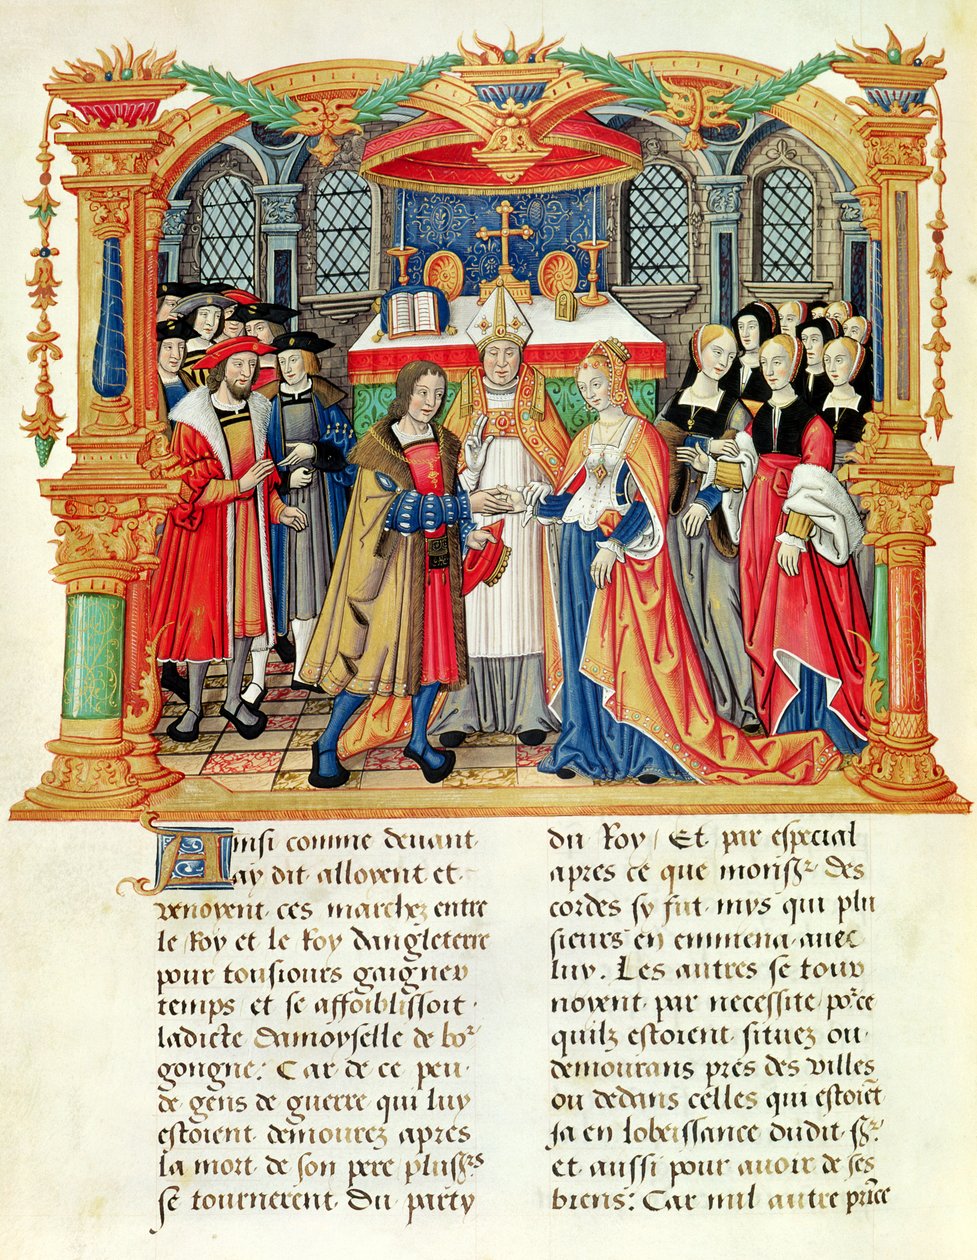 Ainsi comme devant
ay dit alloyent et
venoyent ces marchez entre
le Roy et le Roy dangleterre
pour tousiours gaigner
temps et se affoiblissoit
ladicte damoyselle de bor
gongne: Car de ce peu
de gens de guerre qui luy
estoient demourez apres
la mort de son pere plusrs
se tournerent du party
du Roy / Et par especial
apres ce que monsr des
cordes sy fut mys qui plu
sieurs en emmena avec
luy. Les autres se tour
noyent par necessite porce
quilz estoient situez ou
demourans pres des villes
ou dedans celles qui estoiet
ja en lobeissance dudit sr
et aussi pour avoir de ses
biens: Car nul autre prince